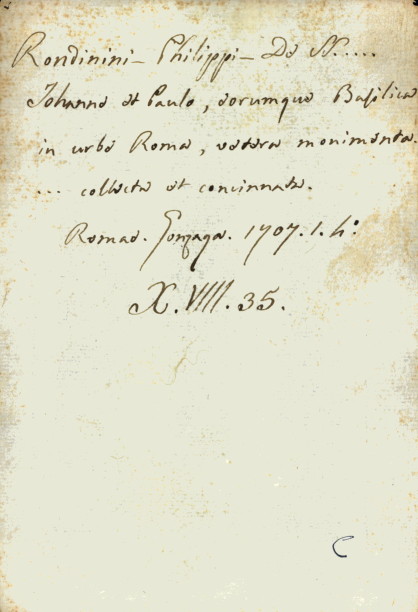 Rondinini - Philippi - De SS.....
Johanne et Paulo, eorumque Basilica
in urbe Roma, vetera monimenta.
... collecta et concinnata.
Romae. Gonzaga. 1707. 1. 4:
X. VIIII. 35.
C